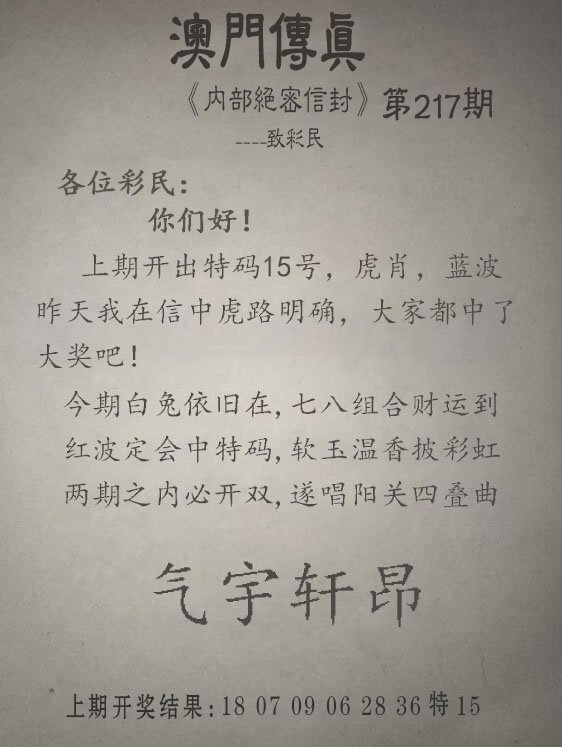 澳門傳眞
《内部絕密信封》第217期
----致彩民
各位彩民:
你们好!
上期开出特码15号，虎肖，蓝波
昨天我在信中虎路明确，大家都中了
大奖吧!
今期白兔依旧在,七八组合财运到
红波定会中特码,软玉温香披彩虹
两期之内必开双,遂唱阳关四叠曲
气宇轩昂
上期开奖结果:18 07 09 06 28 36特15